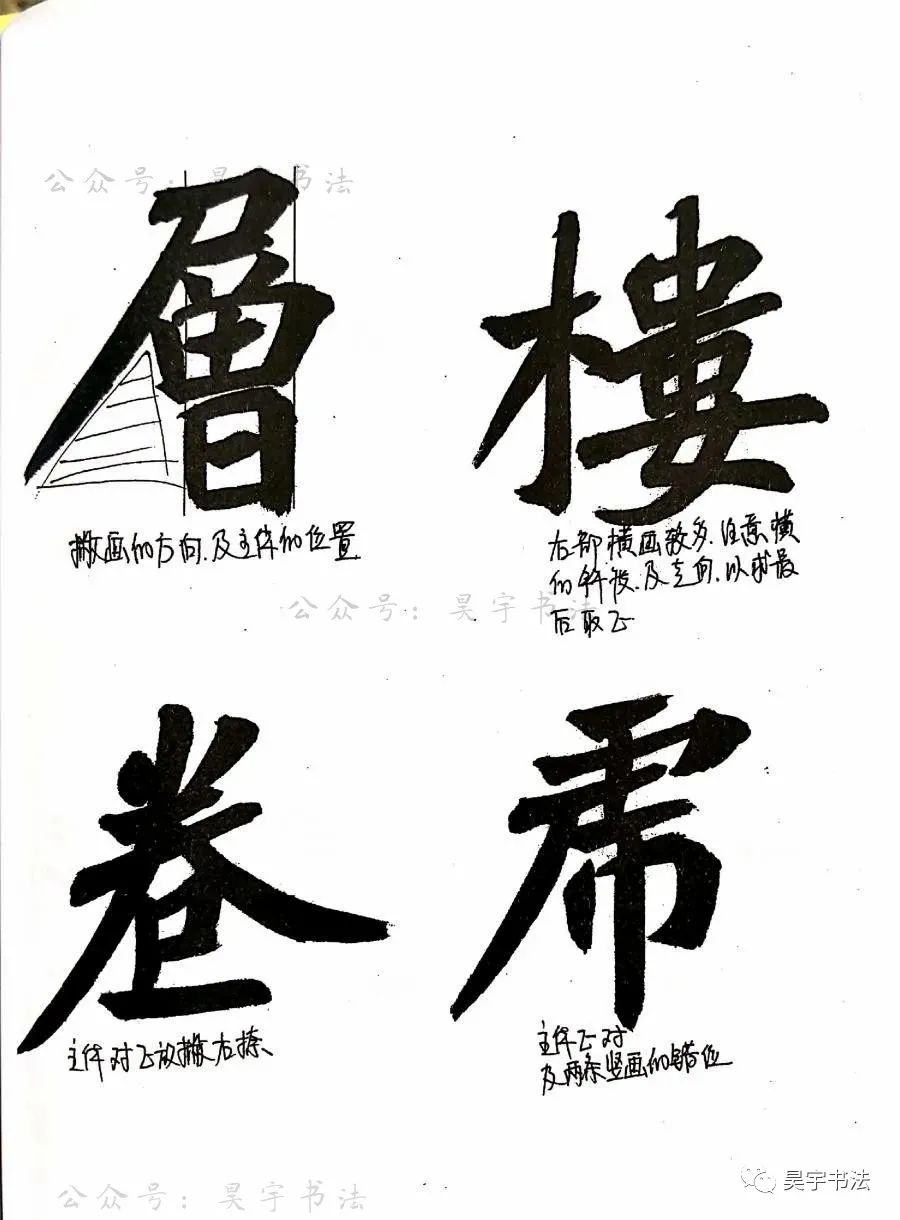 公众号：昊宇书法
層
樓
撇画的方向、及主体的位置
右部横画较多、注意横
的斜度、及走向、以求最
后取正
公众号：昊宇书法
卷
主体对正放撇右捺
主体正对
及两条竖画的错位
昊宇书法
公众号：昊宇书法